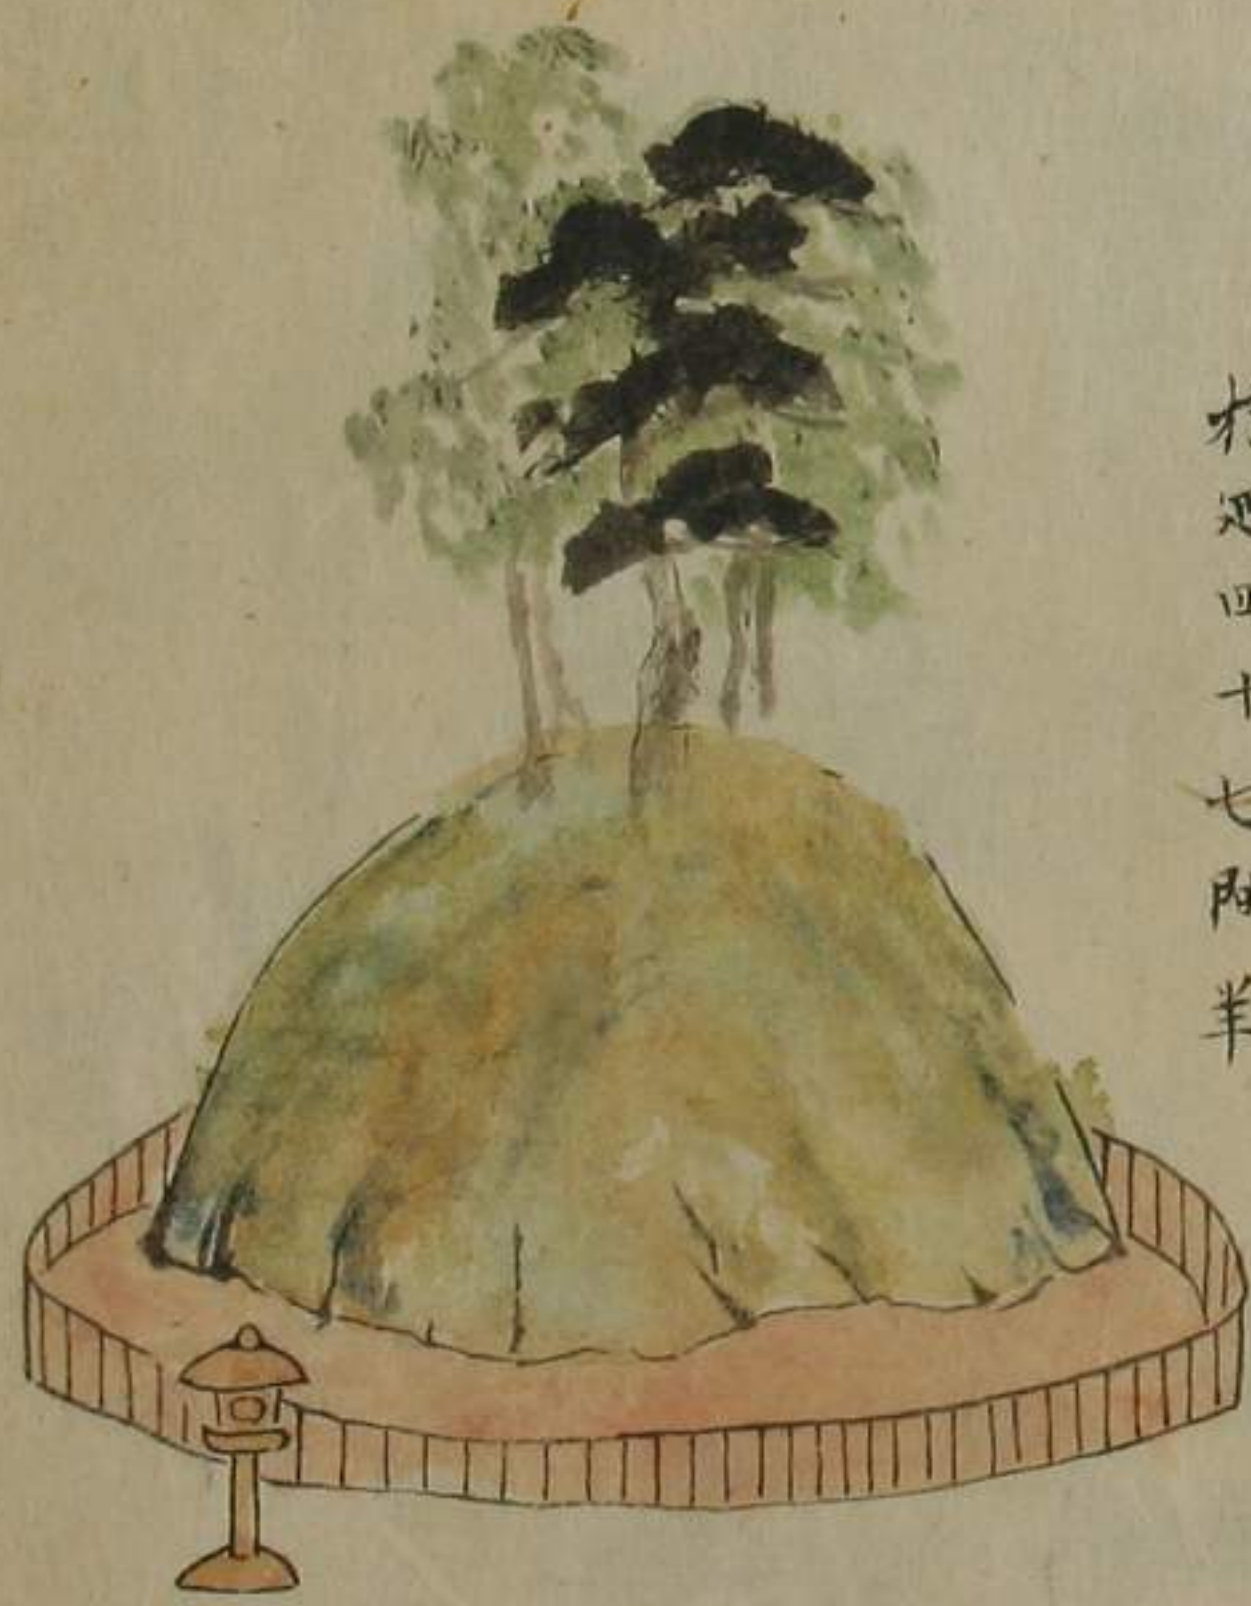 根廻四十七間半